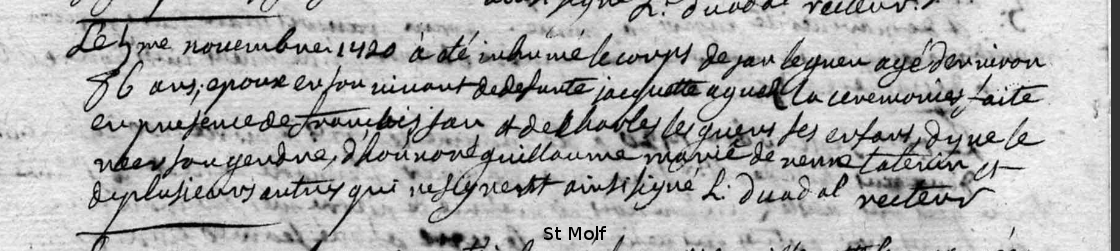 L: duadal recteur
Le 5me novembre 1720 à été inhumé le corps de jan leguen agé denviron
86 ans, epoux en son vivant de defunte jacquette aguesse la ceremonie faite
en presence de francois jan et de charles les guens ses enfans, d yve le
son gendre, d honnoré guillaume marié de renne et
de plusieurs autres qui ne signent ainsi signé L: duadal recteur
St Molf